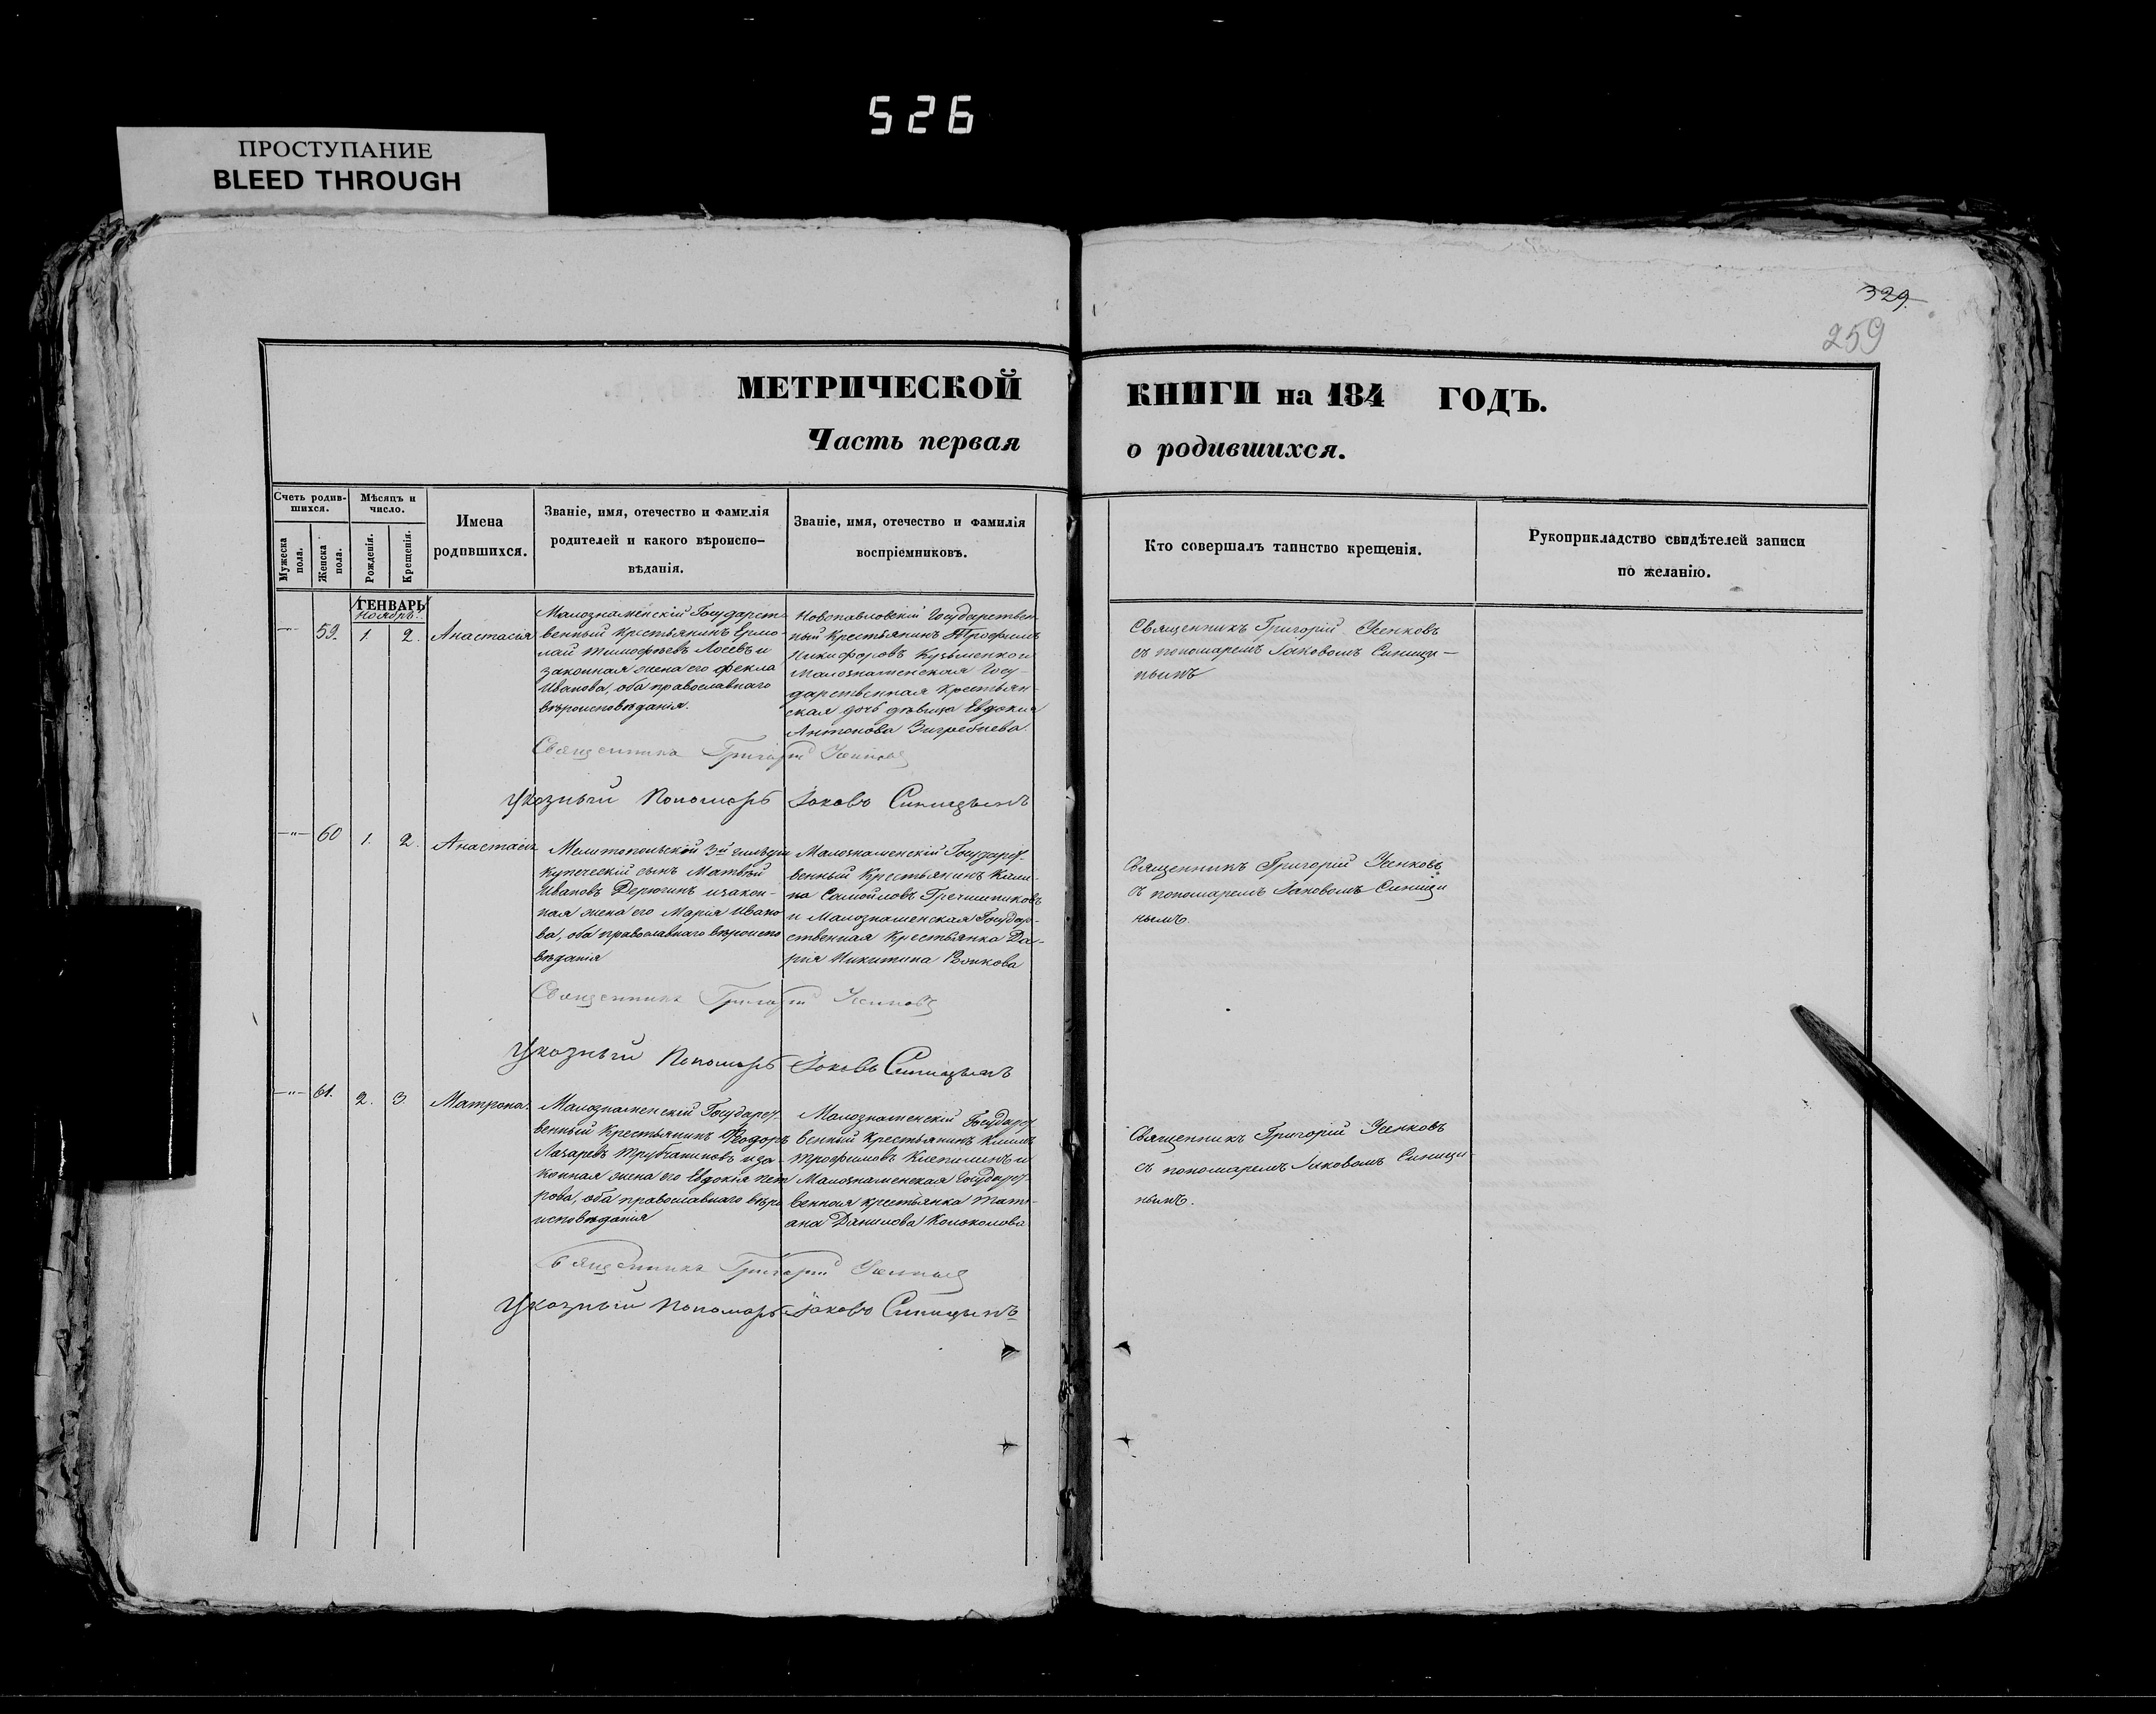 526
ПРОСТУПАНИЕ
BLEED THROUGH
329.
259
МЕТРИЧЕСКОЙ КНИГИ на 184 ГОДЪ.
Часть первая о родившихся.
Счетъ родив-
шихся.
Мужеска
пола.
Женска
пола.
Мѣсяцъ и
число.
Рожденія.
Крещенія.
Имена
родившихся.
Званіе, имя, отечество и фамилія
родителей и какого вѣроиспо-
вѣданія.
Званіе, имя, отечество и фамилія
воспріемниковъ.
Кто совершалъ таинство крещенія.
Рукоприкладство свидѣтелей записи
по желанію.
ГЕНВАРЬ
Ноябрь.
59. 1. 2. Анастасія
Малознаменскій Государст
венный Крестьянинъ Ермо
лай Тимофѣевъ Лосевъ и
законная жена его Фекла
Иванова, оба православнаго
вѣроисповѣданія.
Новопавловскій Государствен
ный Крестьянинъ Трофимъ
Никифоровъ Кузьменко и
Малознаменская Госу-
дарственная Крестьян-
ская дочь дѣвица Евдокія
Антонова
Священникъ Григорій Усенковъ
съ пономаремъ Іаковомъ Синици-
нымъ
Священникъ Григорій Усенковъ
Указный Пономарь Іаковъ Синицынъ
60 1. 2. Анастасія
Мелитопольскій 3й гильдіи
купеческій сынъ Матвѣй
Ивановъ Дерюгинъ и закон-
ная жена его Марія Ивано
ва, оба православнаго вѣроиспо
вѣданія
Малознаменскій Государст-
венный Крестьянинъ Кали-
на Самойловъ Гречишниковъ
и Малознаменская Государ-
ственная Крестьянка Да-
рія Никитина Волкова
Священникъ Григорій Усенковъ
съ пономаремъ Іаковомъ Синици
нымъ.
Священникъ Григорій Усенковъ
Указный Пономарь Іаковъ Синицынъ
61. 2. 3. Матрона.
Малознаменскій Государст-
венный Крестьянинъ Ѳеодоръ
Лазаревъ Трубчаниновъ и за-
конная жена его Евдокія Пет
рова, оба православнаго вѣро
исповѣданія
Малознаменскій Государст-
венный Крестьянинъ Климъ
Трофимовъ и
Малознаменская Государст-
венная крестьянка Тать-
яна Данилова Колоколова
Священникъ Григорій Усенковъ
съ пономаремъ Іаковомъ Синици
нымъ.
Священникъ Григорій Усенковъ
Указный Пономарь Іаковъ Синицынъ